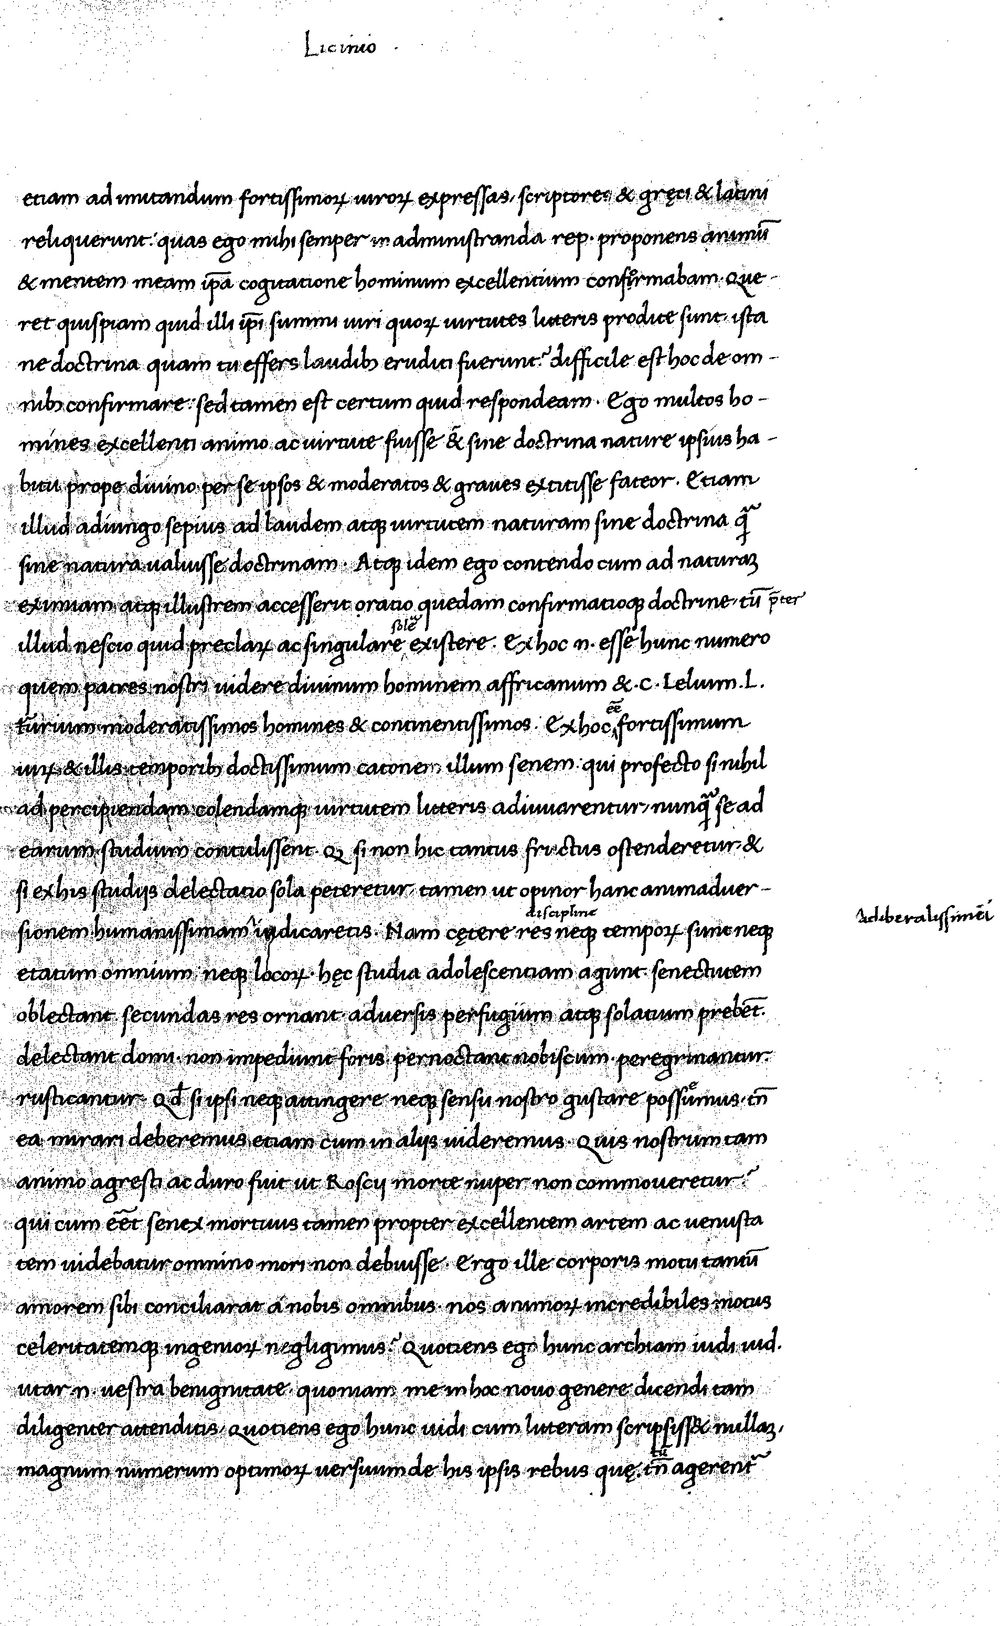 Licinio
etiam ad imitandum fortissimoꝝ uiroꝝ expressas, scriptores & gręci & latini
reliquerunt: quas ego mihi semper in administranda rep. proponens animū
& mentem meam ip̄a cogitatione hominum excellentium conformabam. Que-
ret quispiam quid illi ip̄i summi uiri quoꝝ uirtutes litteris prodite sunt. ista
ne doctrina quam tu effers laudibꝫ eruditi fuerunt? difficile est hoc de om-
nibꝫ confirmare: sed tamen est certum quid respondeam. Ego multos ho-
mines excellenti animo ac uirtute fuisse & sine doctrina nature ipsius ha-
bitu prope diuino per se ipsos & moderatos & graues extitisse fateor. Etiam
illud adiungo sepius ad laudem atqꝫ uirtutem naturam sine doctrina ꝗ̃
sine natura ualuisse doctrinam. Atqꝫ idem ego contendo cum ad naturaꝫ
eximiam atqꝫ illustrem accesserit oratio quedam confirmatioqꝫ doctrine, tū p̄ter
illud nescio quid preclaꝝ ac singulare existere. Ex hoc n. esse hunc numero
quem patres nostri uidere diuinum hominem affricanum &. C. Lelium. L.
fūrium moderatissimos homines & continentissimos. Ex hoc ēē fortissimum
uiꝝ & illis temporibꝫ doctissimum catonem illum senem: qui profecto si nihil
ad percipiendam colendamqꝫ uirtutem litteris adiuuarentur, nunꝗ̃ se ad
earum studium contulissent. Q si non hic tantus fructus ostenderetur. &
si ex his studijs delectatio sola peteretur, tamen ut opinor hanc animaduer-
disciplinę
sionem humanissimam iudicaretis. Nam cętere res neqꝫ tempoꝝ sunt neqꝫ
etatum omnium, neqꝫ locoꝝ. hęc studia adolescentiam agunt. senectutem
oblectant. secundas res ornant. aduersis perfugium atqꝫ solatium prebēt.
delectant domi. non impediunt foris. pernoctant nobiscum. peregrinantur.
rusticantur. Qd̄ si ipsi neqꝫ attingere neqꝫ sensu nostro gustare possemus. tn̄
ea mirari deberemus etiam cum in alijs uideremus. Quis nostrum tam
animo agresti ac duro fuit ut Roscij morte nuper non commoueretur?
qui cum ēēt senex mortuus tamen propter excellentem artem ac uenusta
tem uidebatur omnino mori non debuisse. Ergo ille corporis motu tantū
amorem sibi conciliarat a nobis omnibus. nos animoꝝ incredibiles motus
celeritatemqꝫ ingenioꝝ negligimus? Quotiens ego hunc archiam uidi iud.
utar. n. uestra benignitate. quoniam me in hoc nouo genere dicendi tam
diligenter attenditis, Quotiens ego hunc uidi cum litteram scripsisset nullaꝫ,
magnum numerum optimoꝝ uersuum de his ipsis rebus quę tū tn̄ agerent᷑